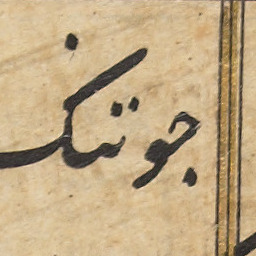 جو تنک